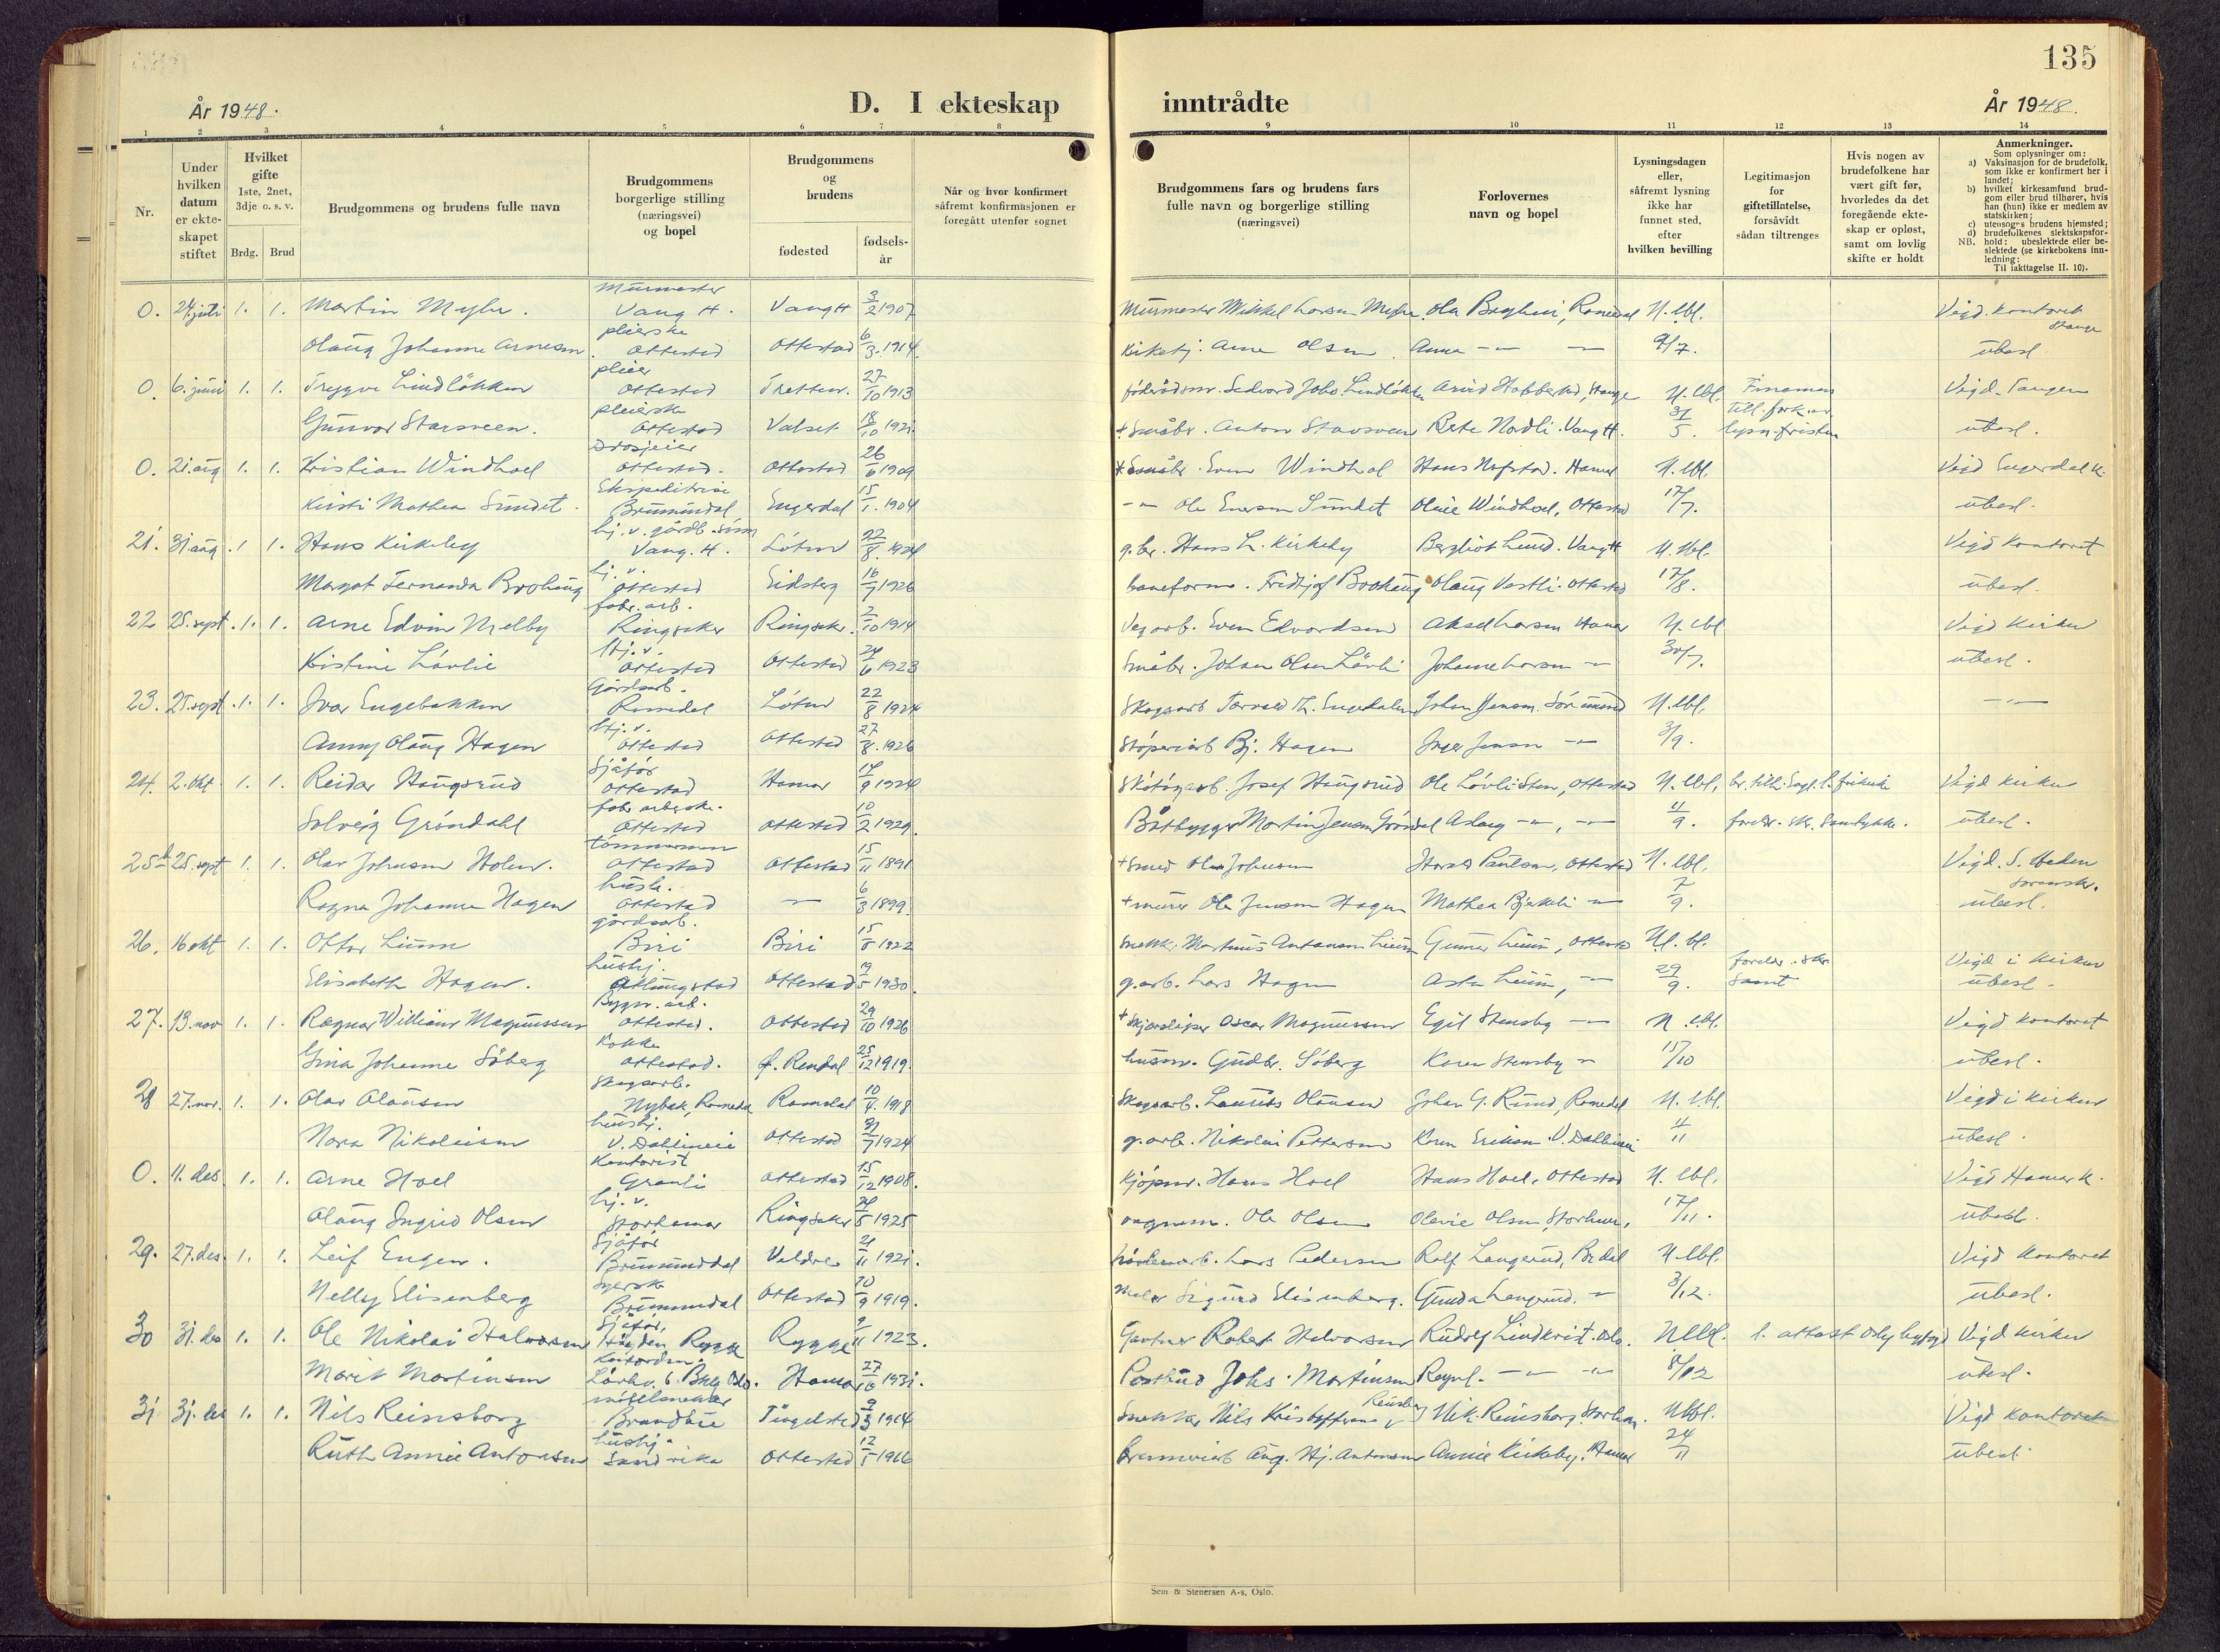 135
År 1948.
D. I ekteskap
inntrådte
År 1948.
1 2 3 4 5 6 7 8 9 10 11 12 13 14
Nr.
Under hvilken datum er ekteskapet stiftet
Hvilket gifte 1ste, 2net, 3dje o. s. v.
Brdg. Brud
Brudgommens og brudens fulle navn
Brudgommens borgerlige stilling (næringsvei) og bopel
Brudgommens og brudens
fødested
fødsels-år
Når og hvor konfirmert såfremt konfirmasjonen er foregått utenfor sognet
Brudgommens fars og brudens fars fulle navn og borgerlige stilling (næringsvei)
Forlovernes navn og bopel
Lysningsdagen eller, såfremt lysning ikke har funnet sted, efter hvilken bevilling
Legitimasjon for giftetillatelse, forsåvidt sådan tiltrenges
Hvis nogen av brudefolkene har vært gift før, hvorledes da det foregående ekteskap er opløst, samt om lovlig skifte er holdt
Anmerkninger.
Som oplysninger om:
a) Vaksinasjon for de brudefolk, som ikke er konfirmert her i landet;
b) hvilket kirkesamfund brudgom eller brud tilhører, hvis han (hun) ikke er medlem av statskirken;
c) utensogns brudens hjemsted;
d) brudefolkenes slektskapsforhold: ubeslektede eller beslektede (se kirkebokens innledning:
NB. Til iakttagelse II. 10).
0. 24. juli 1. 1. Martin Myhr. Murmester Vang H. Vang H 3/2 1907 Murmester Mikkel Larsen Ola Berglivi, Romedal N. lbl. Vigd. kontoret Stange
Olaug Johanne Arnesen pleierske Ottestad Ottestad 6/3 1914 Kirketj. Arne Olsen Anna 9/7. ubesl.
0. 6. juni 1. 1. Tryggve Lindløkken pleier Ottestad Tretten 27/10 1913 Sedvard Johs. Lindløkken Arvid Habberstad, Stange N. lbl. Vigd. Tangen
Gunvor Stavsveen. pleierske Ottestad Valset 18/10 1921 + Småbr. Anton Stavsveen Rete Nordli. Vang H. 31/5. till. fork. av lysn. fristen ubesl.
0. 21. aug 1. 1. Kristian Windhoel Drosjeeier Ottestad. Ottestad 26/6 1909 + Småbr. Even Windhol Hans Nafstad. Hamar N. lbl. Vigd Engerdal k.
Kirsti Mathea Sundet. Ekspeditrise Brumunddal Engerdal 15/1. 1904 Ole Enersen Sundet Olivie Windhoel, Ottestad 17/7. ubesl.
21. 31. aug 1 1. Hans Kirkeby hj. v. gårdb. sønn Vang. H. Løten 22/8. 1924 g.br. Hans L. Kirkeby Bergliot Lund. Vang H N. lbl. Vigd kontoret
Margot Fernanda Brohaug hj. v. Ottestad Eidsberg 16/7 1926 baneform. Fridtjof Brohaug Olaug Vestli. Ottestad 17/8. ubesl.
22 25. sept. 1. 1. Arne Edvin Melby fabr. arb. Ringsaker Ringsaker 2/10 1914 Vegarb. Even Edvardsen Aksel Larsen Hamar N. lbl Vigd Kirken
Kristine Løvlie hj. v. Ottestad Ottestad 24/6 1923 Småbr. Johan Olsen Løvli Johanne Larsen 30/7. ubesl.
23. 25. sept. 1. 1. Ivar Engebakken Gårdsarb. Romedal Løten 22/8 1924 Skogsarb Torvald Th. Engedalen Johan Jensen. N. lbl.
Anny Olaug Hagen hj. v. Ottestad Ottestad 27/8. 1926 Støperiarb Bj. Hagen Inger Jensen 3/9.
24. 2. okt. 1. 1. Reidar Haugsrud Sjåfør Ottestad Hamar 14/9 1924 Skotøyarb. Josef Haugsrud Ole Løvli-Sten, Ottestad N. lbl. Vigd kirken
Solveig Grøndahl fabr. arbeidske. Ottestad Ottestad 10/2 1929. Båtbygger Martin Jensen Grøndal Aslaug 4/9. foreldr. skr. Samtykke. ubesl.
25 25. sept 1. 1. Olav Johnsen Holen. tømmermann Ottestad Ottestad 15/11 1891 + Smed Ole Johnsen Harald Paulsen, Ottestad N. lbl. Vigd. S. Heden sorenskr.
Ragna Johanne Hagen hush. Ottestad 6/3 1899. + murer Ole Jensen Hagen Mathea Bjekli 7/9. ubesl.
26. 16 okt 1. 1. Ottar Lium gårdsarb. Biri Biri 15/8 1922 Snekk. Martinus Antonsen Lium Gunnar Lium, Ottestad N. lbl. Vigd i kirken
Elisabeth Hagen. hushj. Atlungstad Ottestad 19/5 1930. g.arb. Lars Hagen Asta Lium, 29/9. foreldr. skr. Samt ubesl.
27. 13. nov 1. 1. Ragnar William Magnussen Bygn. arb. Ottestad. Ottestad 29/10 1926 + Skjærsliper Oscar Magnussen Egil Stensby N. lbl. Vigd kontoret
Gina Johanne Søberg Kokke Ottestad. Ø. Rendal 25/12 1919. husm. Gudbr. Søberg Karen Stensby 15/10 ubesl.
28 27. nov. 1. 1. Olav Olausen Skogsarb. Nybak, Romedal Romedal 10/4. 1918 Skogsarb. Laurits Olausen Johan G. Rund, Romedal N. lbl. Vigd i kirken
Nora Nikolaisen hushj. V. Dahlineie Ottestad 31/7 1924 g.arb. Nikolai Pettersen Karen Eriksen V. Dahlineie 4/11 ubesl.
0. 11. des. 1. 1. Arne Hoel Kontorist Granli Ottestad 15/12 1908. Kjøpm. Hans Hoel Hans Hoel, Ottestad N. lbl. Vigd Hamar k.
Olaug Ingrid Olsen hj. v. Storhamar Ringsaker 24/5 1925 vognm. Ole Olsen Olevie Olsen, Storham. 17/11. ubesl.
29. 27. des. 1. 1. Leif Engen. Sjåfør Brumunddal Veldre 21/11 1921. Lars Pedersen Rolf Langerud, Br.dal N. lbl. Vigd kontoret
Nelly Elisenberg Syerske Brumunddal Ottestad 10/9 1919. Maler Sigurd Elisenberg. Gunda Langerud. 3/12. ubesl.
30 31. des 1. 1. Ole Nikolai Halvorsen Sjåfør, Høyden Rygge Rygge 9/11 1923. Gartner Robert Halvorsen Rudolf Lindkvist. Oslo. N lbl. l. attest Oslo byfogd Vigd kirken
Marit Martinsen Kontordm. Hamar 27/10 1931. Postbud Johs. Martinsen Ragnh. 8/12 ubesl.
31 31. des 1. 1. Nils Reinsborg møbelsnekker Brandbu Tingelstad 9/3 1914 Snekker Nils Kristoffersen Reinsborg Nik. Reinsborg, Storham. N lbl. Vigd kontoret
Ruth Annie Antonsen hushj. Sandvika Ottestad 12/5 1916 Brenneriarb Aug. Hj. Antonsen Annie Kirkeby. Hamar 24/11 ubesl.
Sem & Stenersen A-s, Oslo.